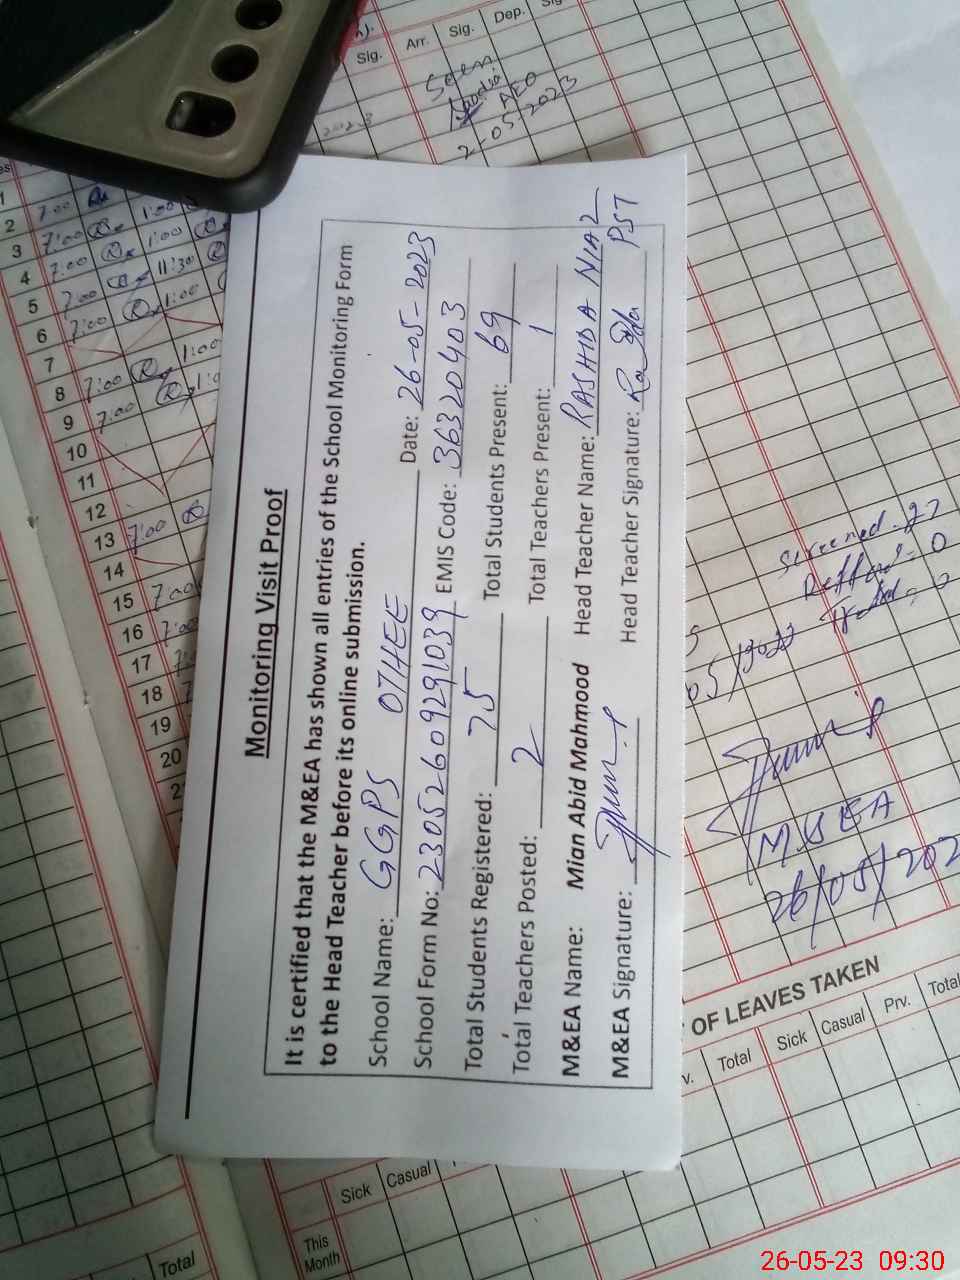 Monitoring Visit Proof
It is certified that the M&EA has shown all entries of the School Monitoring Form
to the Head Teacher before its online submission.
School Name: GGPS OTHEE Date: 26-05-2023
School Form No: 23052609291039 EMIS Code: 36320403
Total Students Registered: 75 Total Students Present: 69
Total Teachers Posted: 2 Total Teachers Present: 1
M&EA Name: Mian Abid Mahmood Head Teacher Name: RASHIDA NIAZ
M&EA Signature: Head Teacher Signature: PST
Sig. Arr. Sig. Dep.
Seen
AEO
2-05-2023
1
2 7:00 1:00
3 7:00 1:00
4 7:00 11:30
5 7:00 1:00
6 7:00
7 1:00
8 7:00
9 7:00
10
11
12
13 7:00
14
15 7:00
16 7:00
17
18
19
20
Screened - 27
M&EA
26/05/202
OF LEAVES TAKEN
Total Sick Casual Prv. Total
Sick Casual
This
Month
Total
26-05-23 09:30